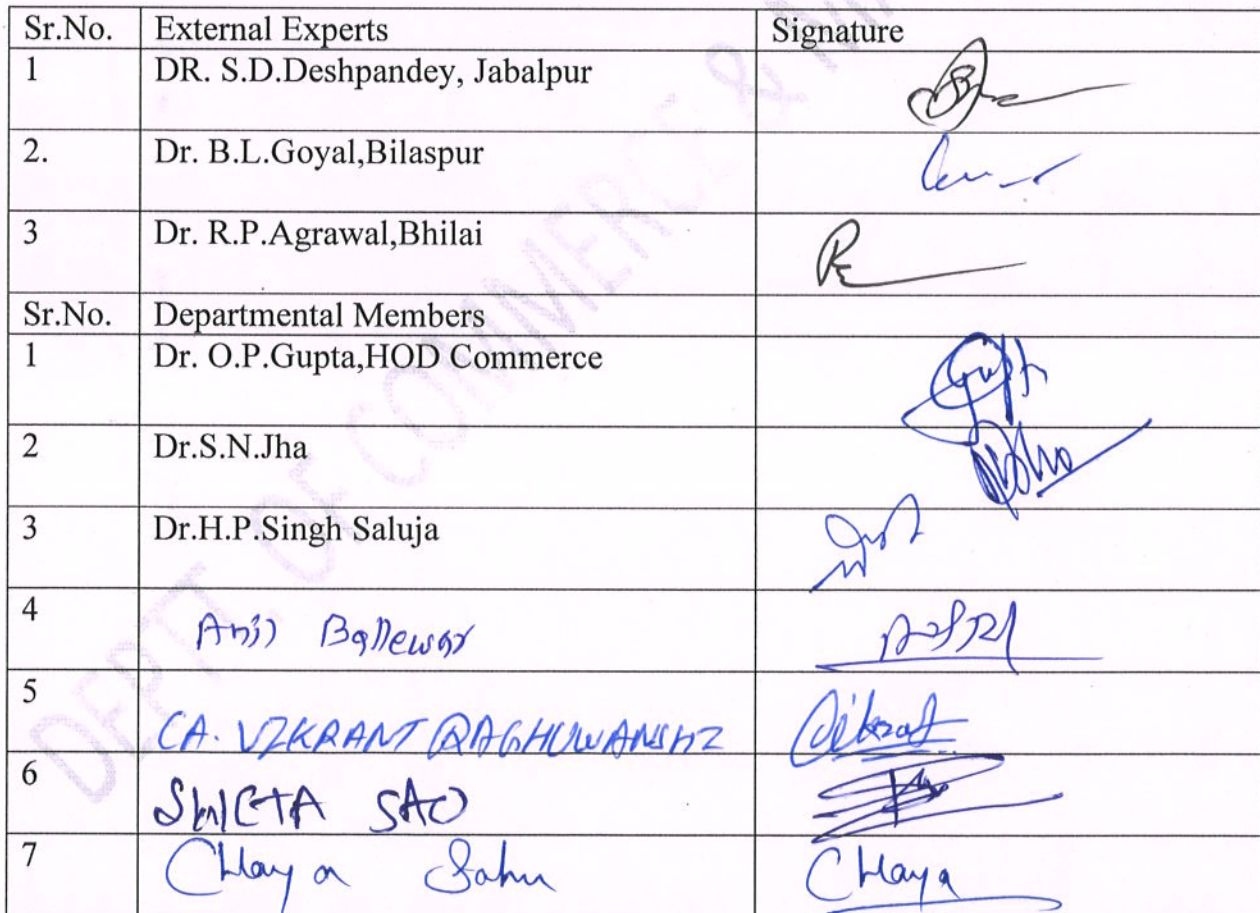 Sr.No. External Experts Signature
1 DR. S.D.Deshpandey, Jabalpur
2. Dr. B.L.Goyal,Bilaspur
3 Dr. R.P.Agrawal,Bhilai
Sr.No. Departmental Members
1 Dr. O.P.Gupta,HOD Commerce Gupta
2 Dr.S.N.Jha
3 Dr.H.P.Singh Saluja
4 Anil Ballewar
5 CA. VIKRANT RAGHUWANSHI Vikrant
6 SHWETA SAO
7 Chhaya Sahu Chhaya
DEPTT. OF COMMERCE &